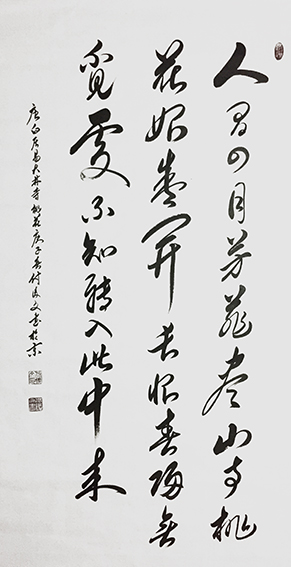 人間四月芳菲盡山寺桃
花始盛開長恨春歸無
覓處不知轉入此中來
唐白居易大林寺桃花庚子春付文書於京